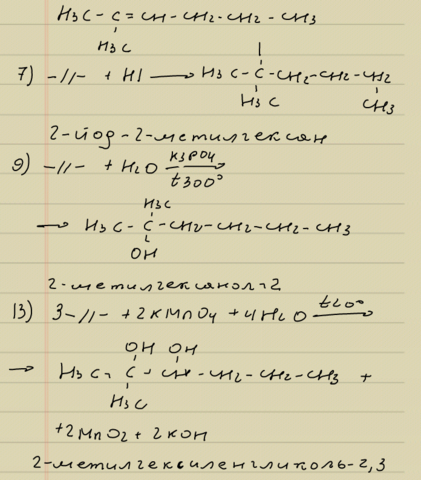 H3C - C = CH - CH2 - CH2 - CH3
H3C
7) -//- + HI → H3C - C - CH2 - CH2 - CH2
I
H3C CH3
2-йод-2-метилгексан
9) -//- + H2O K3PO4 t300°
H3C
→ H3C - C - CH2 - CH2 - CH2 - CH3
OH
2-метилгексанол-2
13) 3 -//- + 2KMnO4 + 4H2O t20° →
OH OH
→ H3C - C - CH - CH2 - CH2 - CH3 +
H3C
+2MnO2 + 2KOH
2-метилгексиленгликоль-2,3